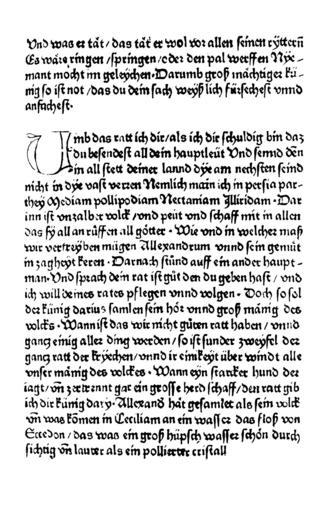 Vnd was er tät / das tät er wol vor allen seinen rÿttern
Es wäre ringen / springen / oder den pal werffen Nÿe-
mant mocht im geleÿchen · Darumb groß mächtiger kü-
nig so ist not / das du dein sach weÿßlich fürsechest vnnd
anfachest ·
Vmb das ratt ich dir / als ich dir schuldig bin daz
du besendest all dein hauptleüt Vnd sennd den
in all stett deiner lannd dÿe am nechsten seind
nicht in dÿe vast verren Nemlich main ich in persia par-
theÿ Mediam pollipodiam Nectaniam Illiridam · Dar
inn ist vnzalber volck / vnd peüt vnd schaff mit in allen
das sÿ all an rüffen all götter · Wie vnd in welcher maß
wir vertreÿben mügen Allexandrum vnnd sein gemüt
in zagheÿt keren · Darnach stünd auff ein ander haupt-
man · Vnd sprach dein rat ist güt den du geben hast / vnd
ich will deines rates pflegen vnnd volgen · Doch so sol
der künig darius samlen sein hör vnnd groß mänig des
volcks · Wann ist das wir nicht güten ratt haben / vnnd
ganz einig aller ding werden / so ist sunder zweÿfel der
ganz ratt der kreÿchen / vnnd ir einikeÿt über windt alle
vnser mänig des volckes · Wann eÿn starcker hund der
iagt / vn̄ zertrennt gar ein grosse herd schaff / den ratt gib
ich dir künig darÿ · Allexand hät gesamlet als sein volck
vn̄ was komen in Ceciliam an ein wasser das floß von
Ectedon / das was ein groß hüpsch wasser schön durch
sichtig vn̄ lauter als ein pollierter cristall